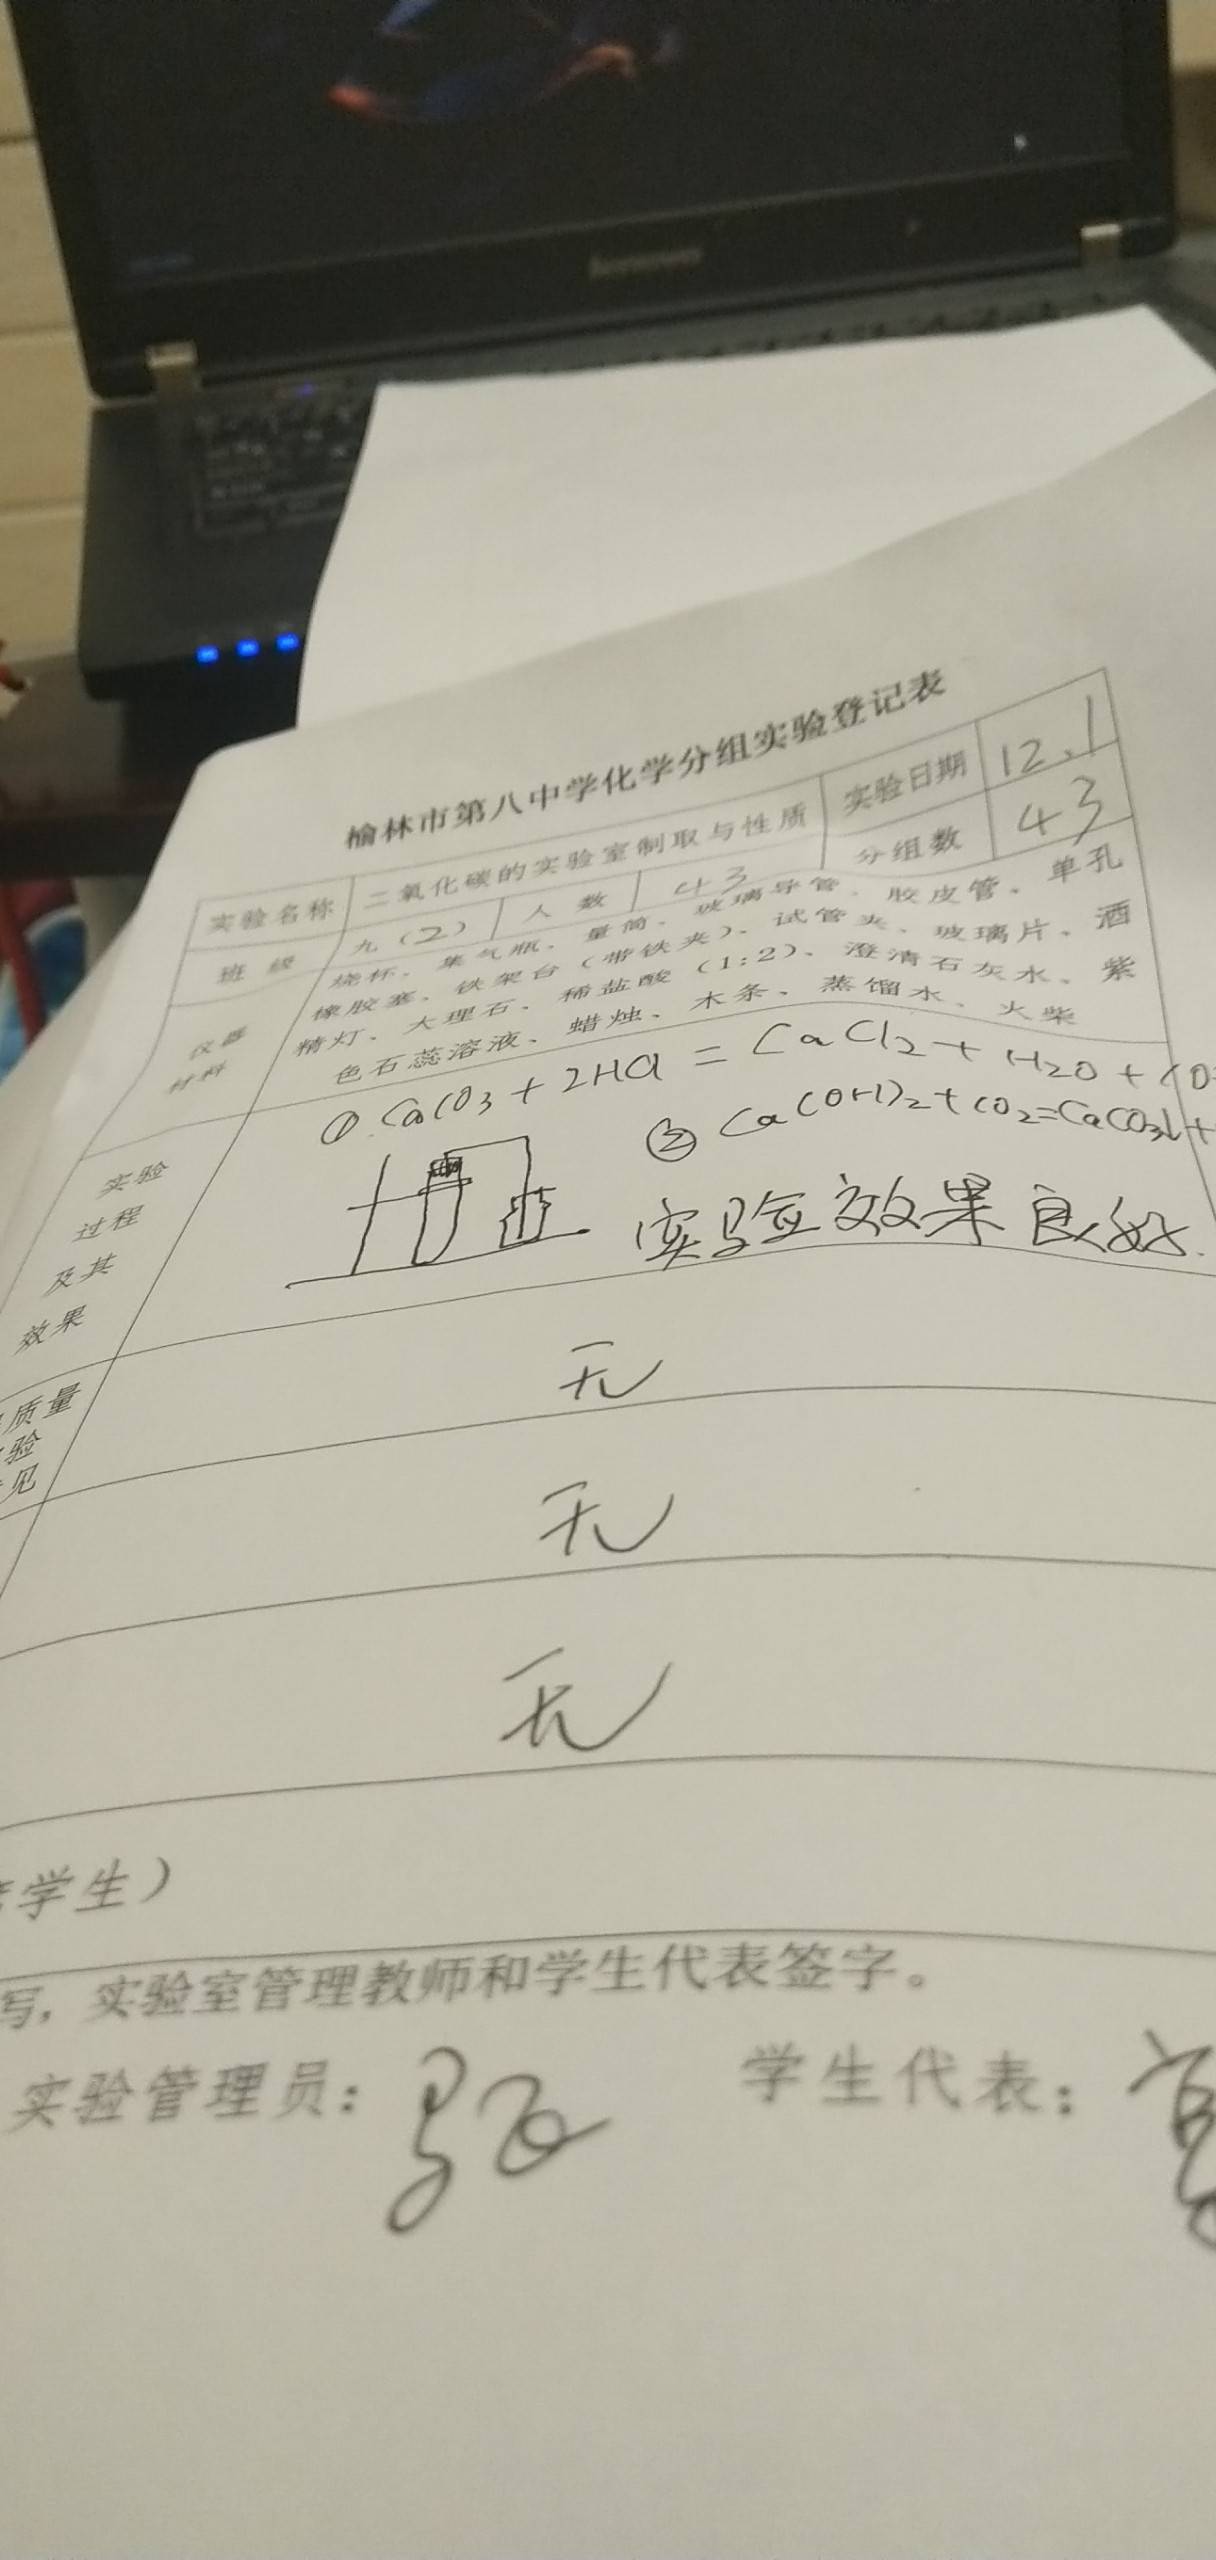 lenovo
榆林市第八中学化学分组实验登记表
实验名称 二氧化碳的实验室制取与性质 实验日期 12.1
班 级 九（2） 人 数 43 分组数 43
仪器
材料
烧杯、集气瓶、量筒、玻璃导管、胶皮管、单孔
橡胶塞、铁架台（带铁夹）、试管夹、玻璃片、酒
精灯、大理石、稀盐酸（1:2）、澄清石灰水、紫
色石蕊溶液、蜡烛、木条、蒸馏水、火柴
实验
过程
及其
效果
① CaCO3 + 2HCl = CaCl2 + H2O + CO2
② Ca(OH)2 + CO2 = CaCO3↓ +
实验效果良好.
质量
验
见
无
无
无
学生）
写，实验室管理教师和学生代表签字。
实验管理员：
学生代表：